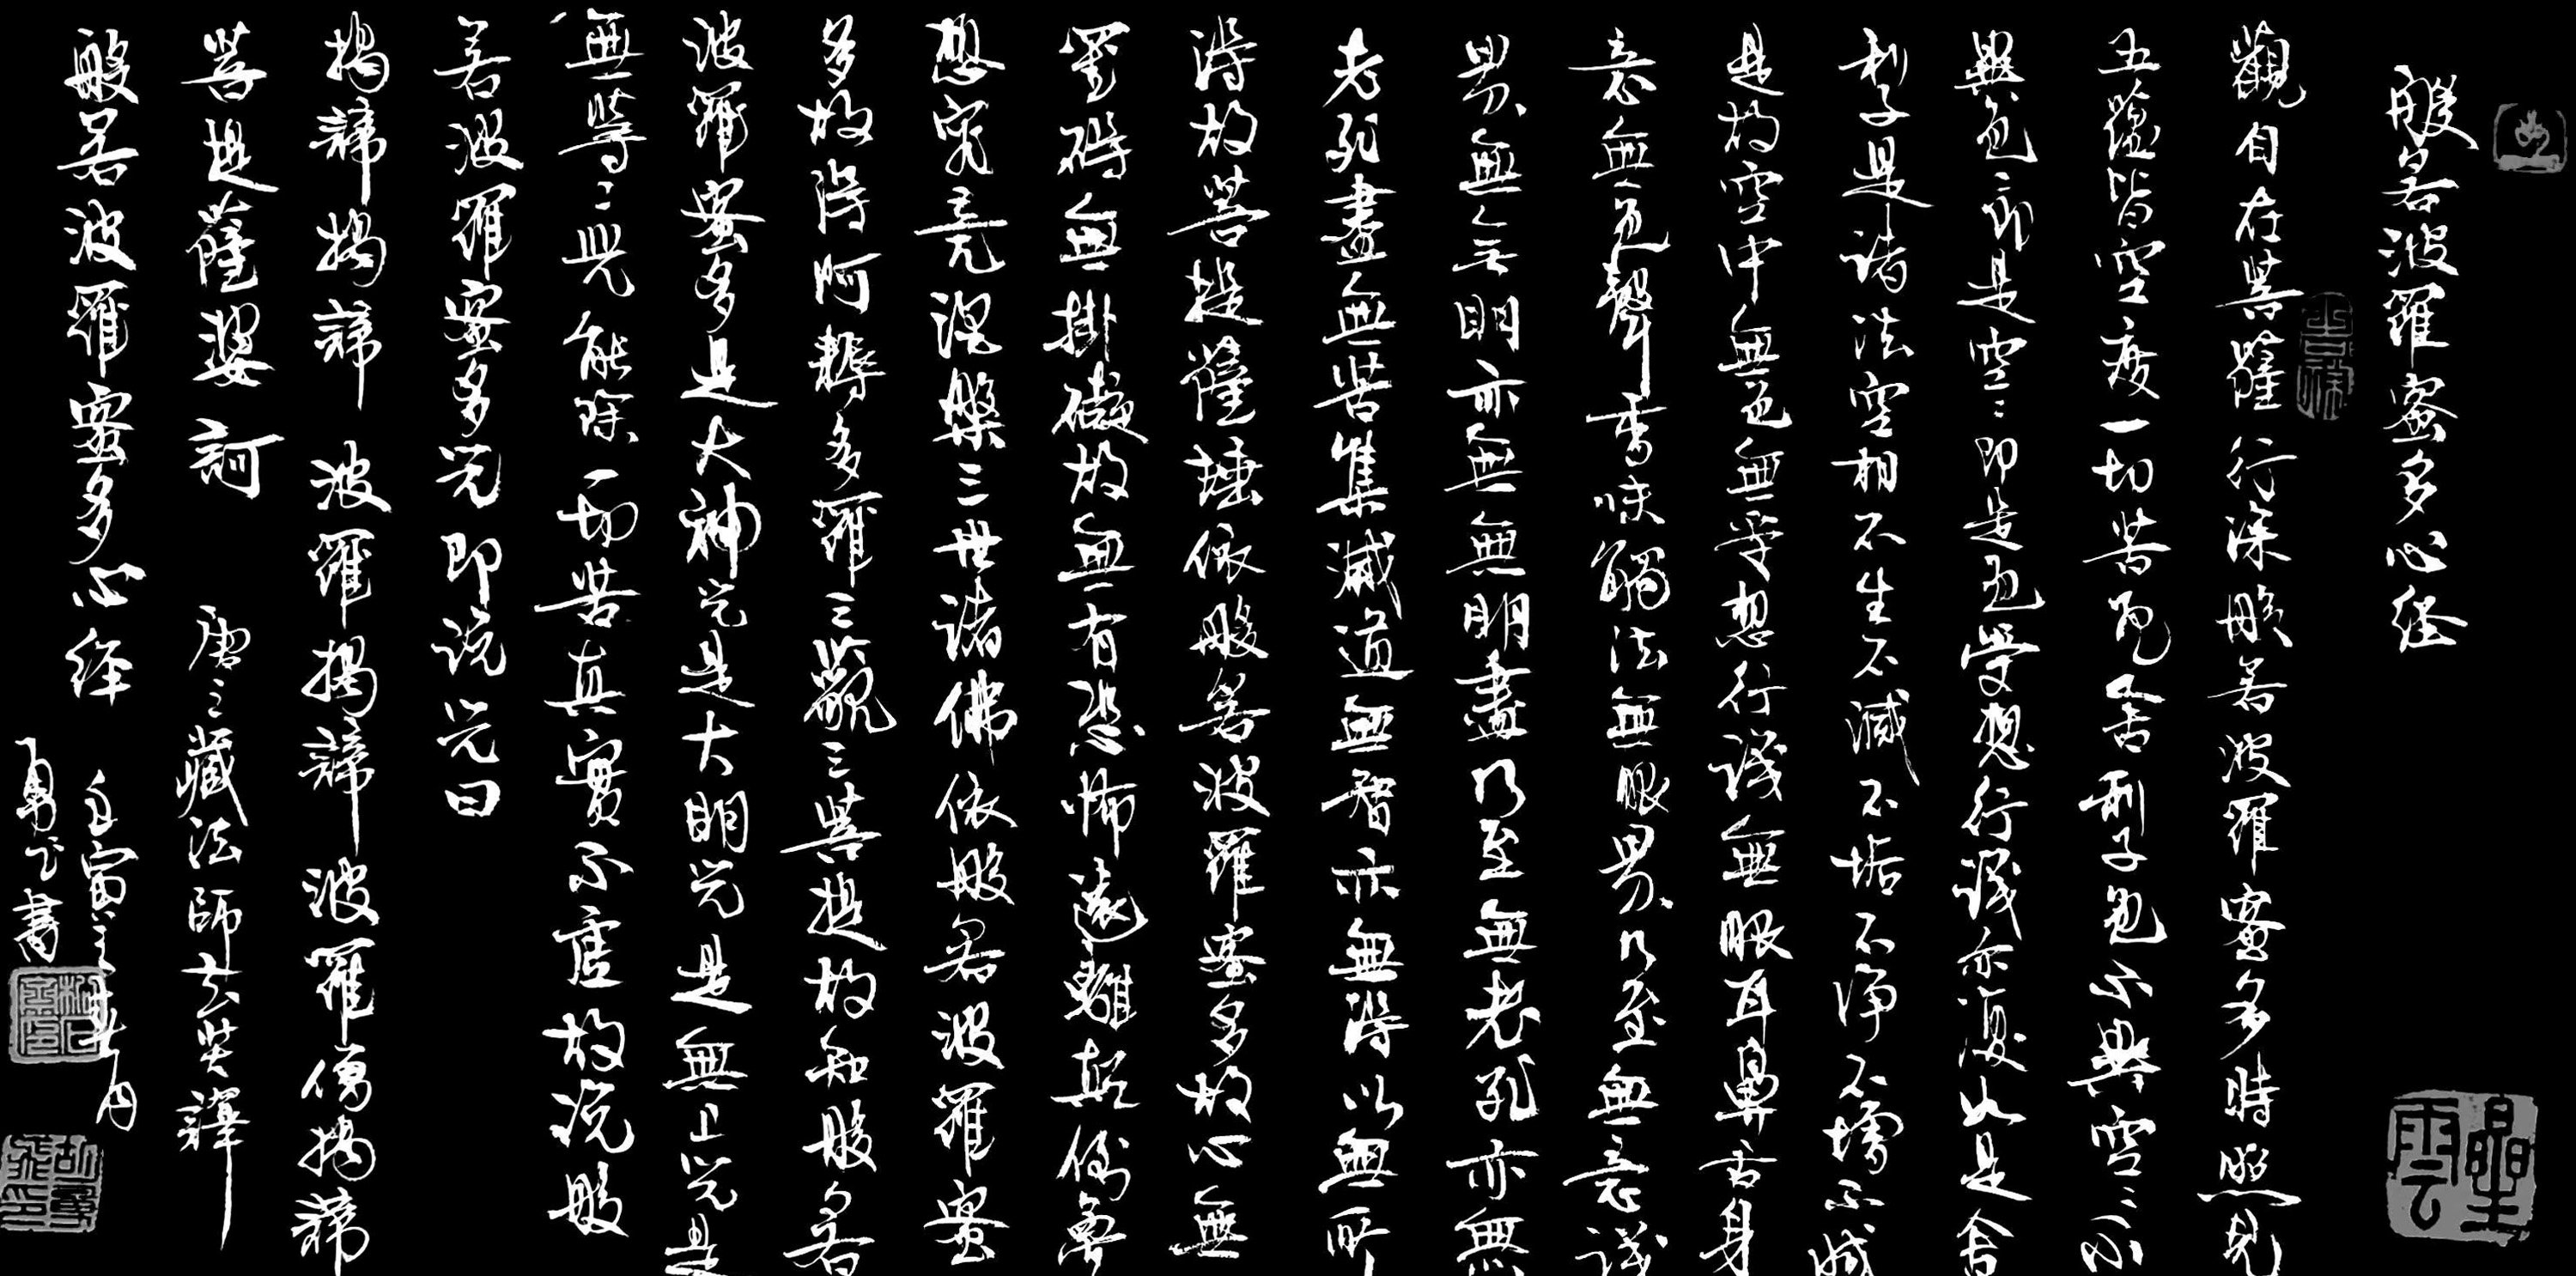 般若波羅蜜多心經
觀自在菩薩行深般若波羅蜜多時照見
五蘊皆空度一切苦厄舍利子色不異空〻不
異色〻即是空〻即是色受想行識亦復如是舍
利子是諸法空相不生不滅不垢不淨不增不減
是故空中無色無受想行識無眼耳鼻舌身
意無色聲香味觸法無眼界乃至無意識
界無無明亦無無明盡乃至無老死亦無
老死盡無苦集滅道無智亦無得以無所
得故菩提薩埵依般若波羅蜜多故心無
罣礙無掛礙故無有恐怖遠離顛倒夢
想究竟涅槃三世諸佛依般若波羅蜜
多故得阿耨多羅三藐三菩提故知般若
波羅蜜多是大神咒是大明咒是無上咒是
無等〻咒能除一切苦真實不虛故說般
若波羅蜜多咒即說咒曰
揭諦揭諦 波羅揭諦 波羅僧揭諦
菩提薩婆訶 唐三藏法師玄奘譯
般若波羅蜜多心經 壬寅之春月
勇飞書